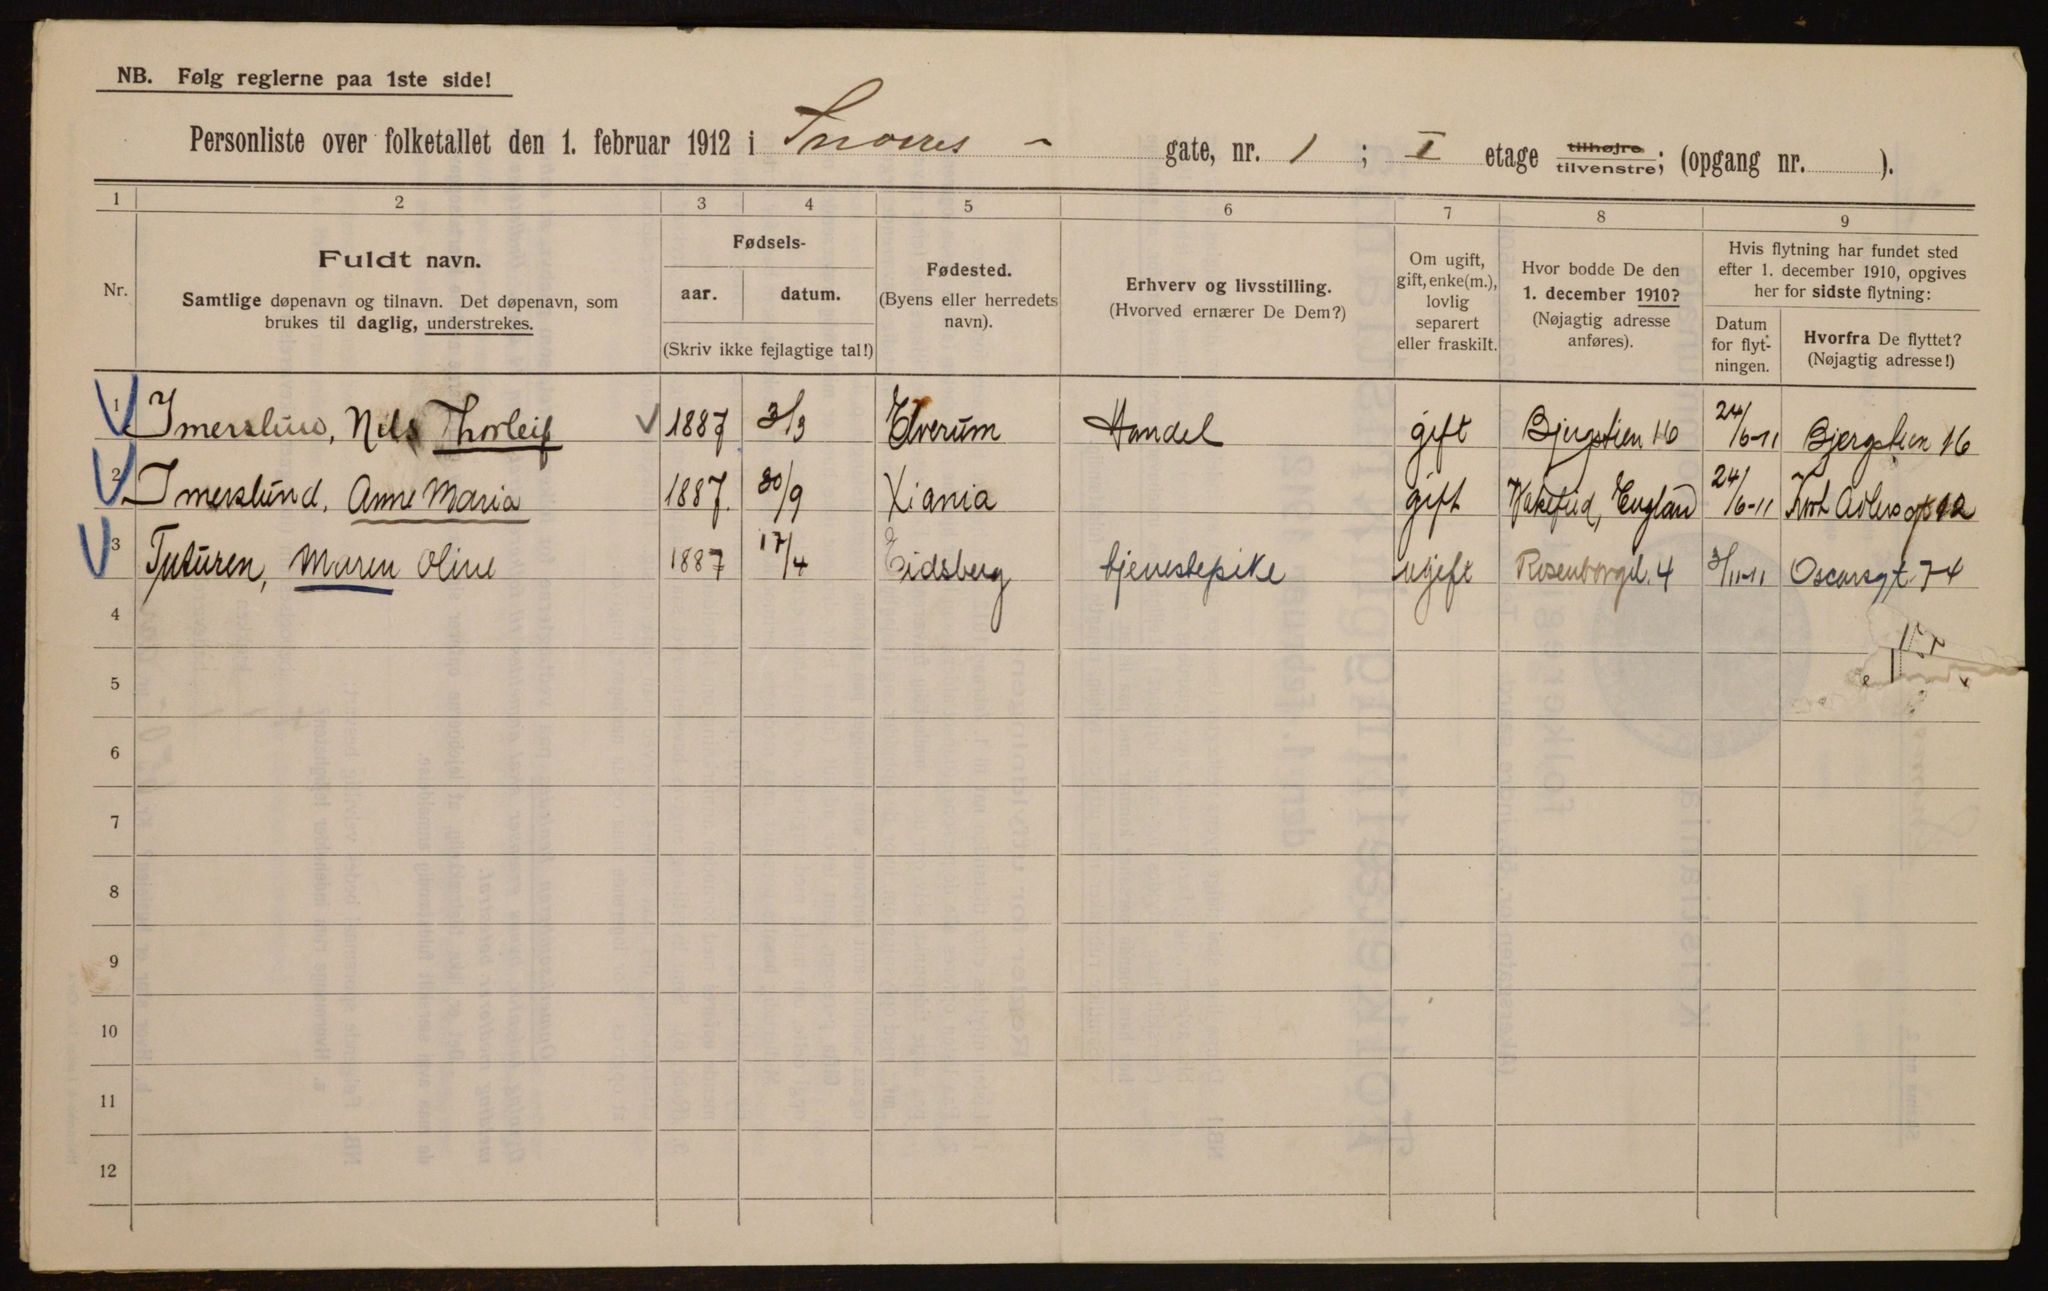 NB. Følg reglerne paa 1ste side!
Personliste over folketallet den 1. februar 1912 i Snorres - gate, nr. 1; I etage tilhøjre tilvenstre; (opgang nr. ).
1 2 3 4 5 6 7 8 9
Nr.
Fuldt navn.
Samtlige døpenavn og tilnavn. Det døpenavn, som
brukes til daglig, understrekes.
Fødsels-
aar. datum.
(Skriv ikke fejlagtige tal!)
Fødested.
(Byens eller herredets
navn).
Erhverv og livsstilling.
(Hvorved ernærer De Dem?)
Om ugift,
gift, enke(m.),
lovlig
separert
eller fraskilt.
Hvor bodde De den
1. december 1910?
(Nøjagtig adresse
anføres).
Hvis flytning har fundet sted
efter 1. december 1910, opgives
her for sidste flytning:
Datum
for flyt-
ningen.
Hvorfra De flyttet?
(Nøjagtig adresse!)
1 Imerslund, Nils Thorleif 1887 3/3 Elverum Handel gift Bjergstien 16 24/6-11 Bjergstien 16
2 Imerslund, Anne Maria 1887. 30/9 Xiania gift England 24/6-11 Kort Adlersgt 12
3 Maren Oline 1887 17/4 Eidsberg tjenestepike ugift Rosenborggd. 4 3/11-11 Oscarsgt. 74
4
5
6
7
8
9
10
11
12